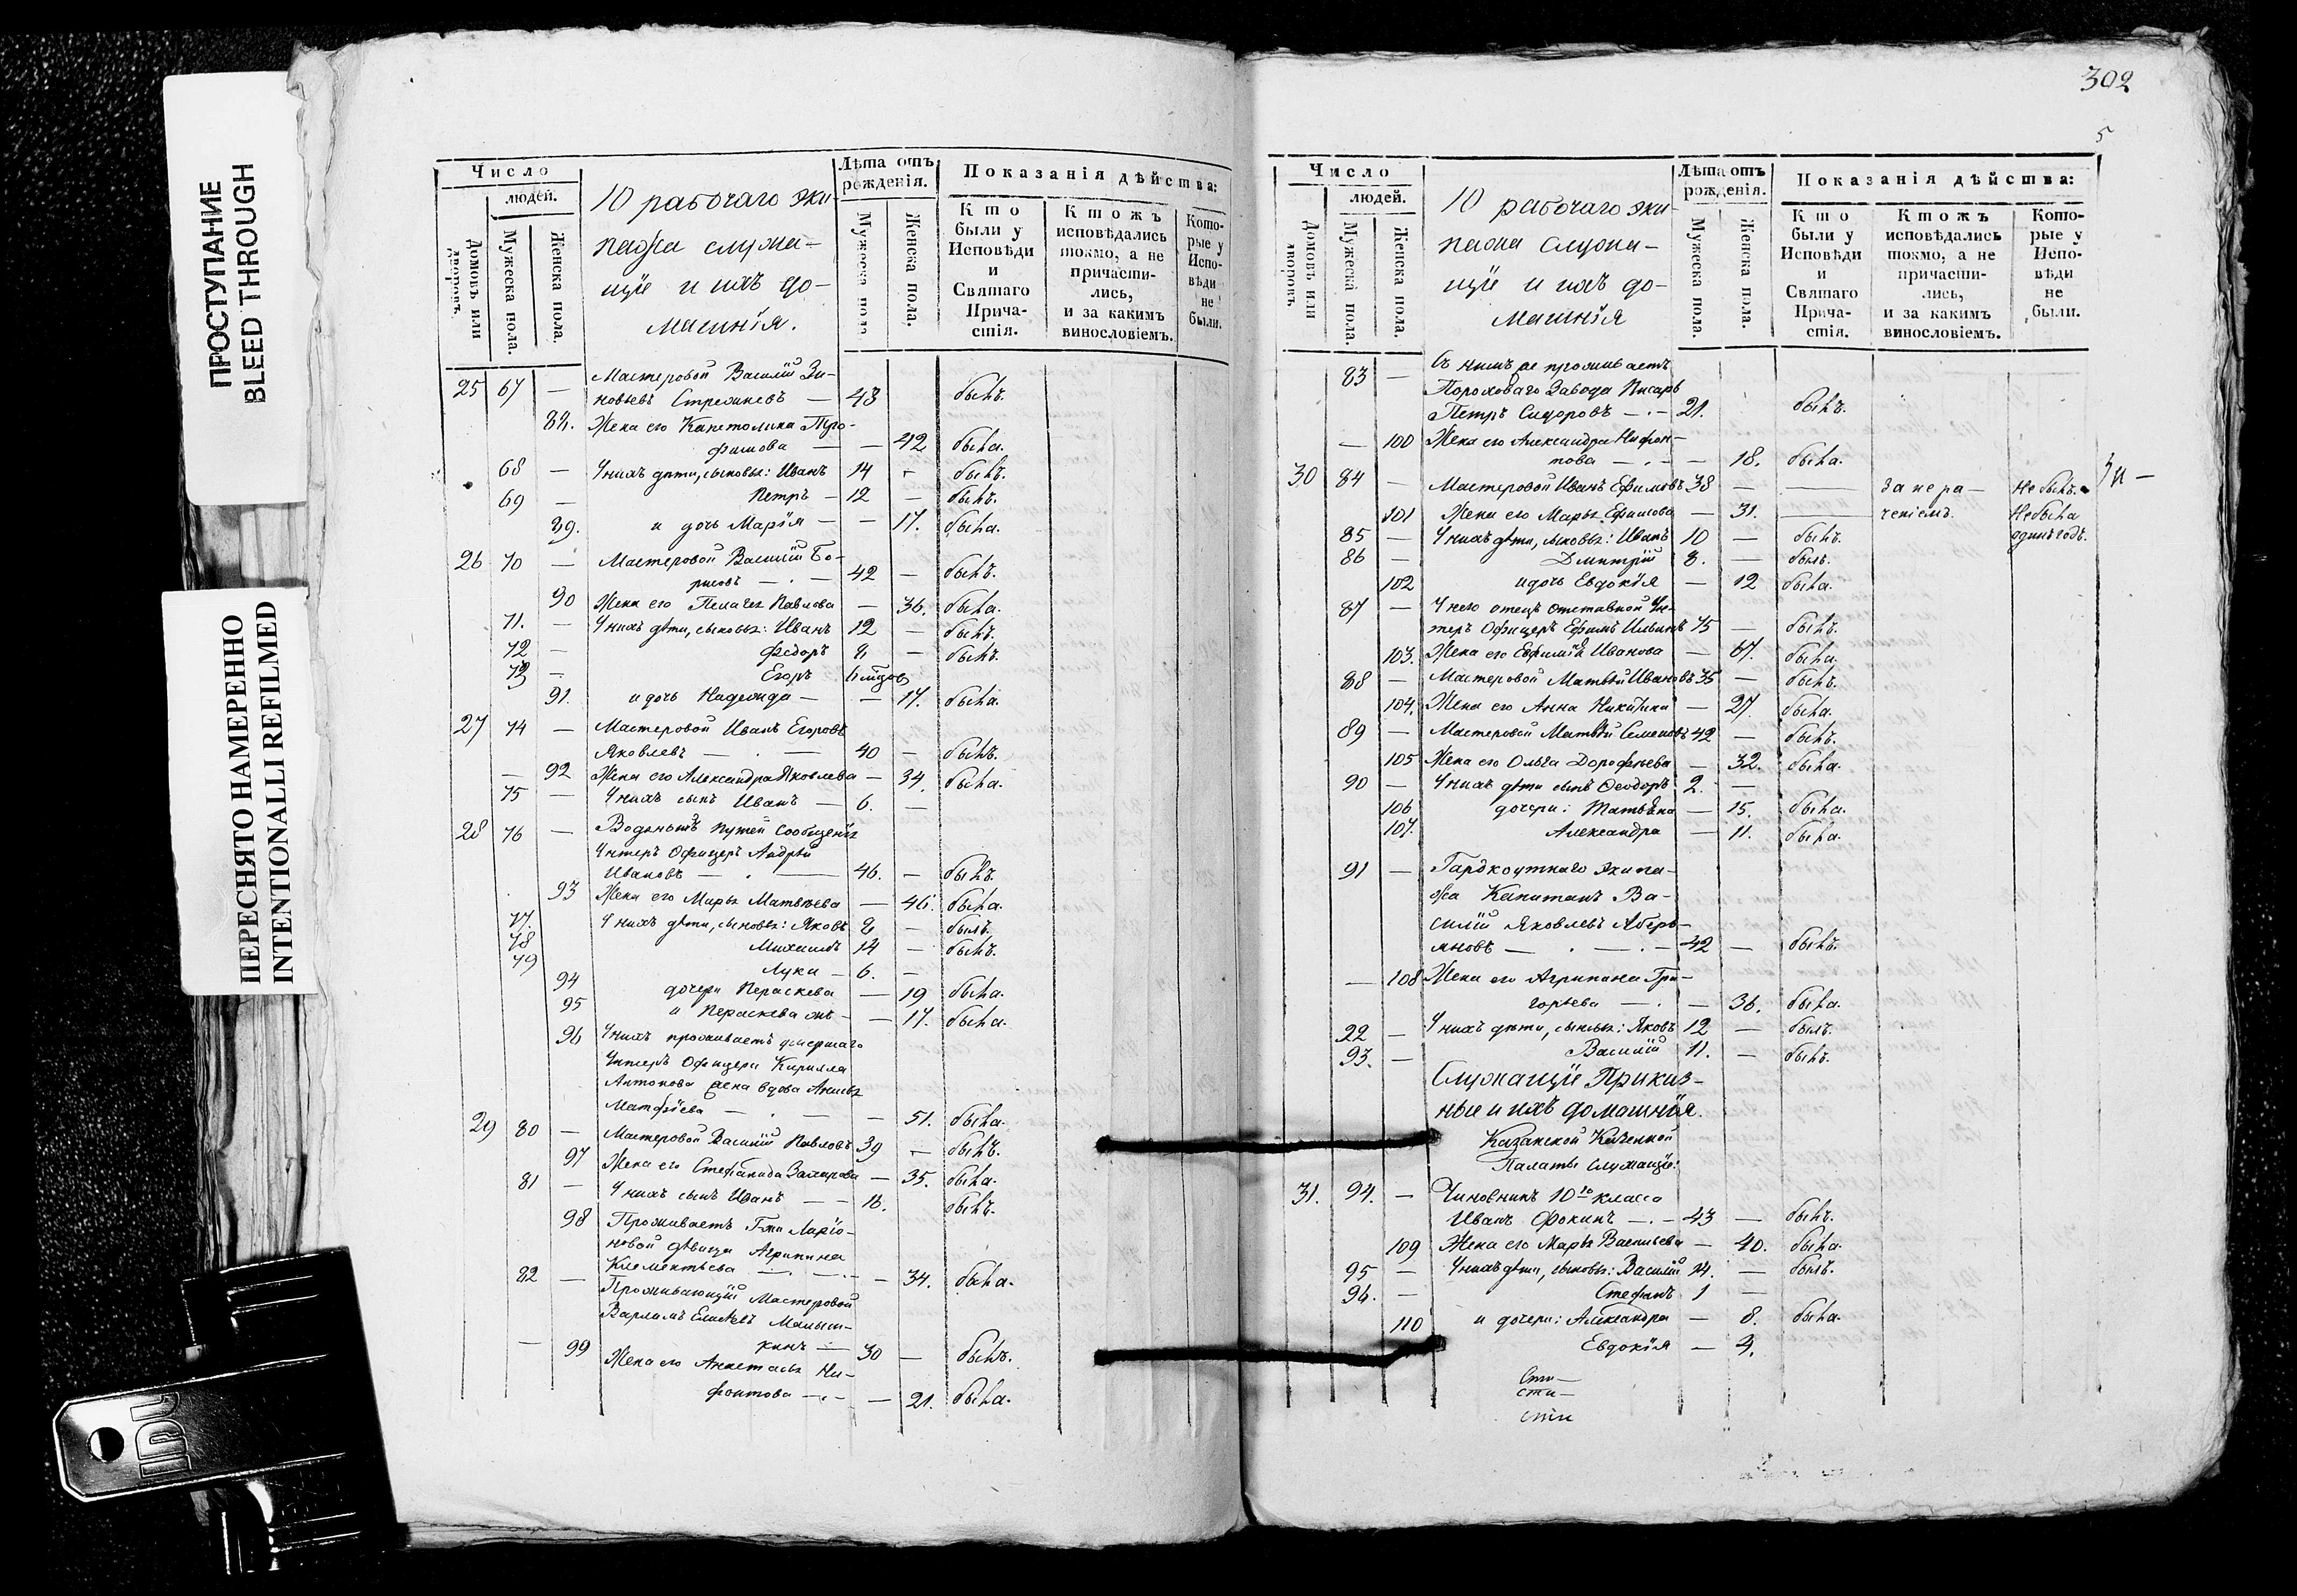 ПРОСТУПАНИЕ
BLEED THROUGH
ПЕРЕСНЯТО НАМЕРЕННО
INTENTIONALLI REFILMED
Число
людей.
Домовъ или дворовъ.
Мужеска пола.
Женска пола.
10 рабочаго эки-
пажа служа-
щіе и ихъ до-
машнія.
Лѣта отъ рожденія.
Мужеска пола
Женска пола.
Показанія дѣйства:
Кто были у Исповѣди и Святаго Причастія.
Ктожъ исповѣдались токмо, а не причасти-лись, и за какимъ винословіемъ.
Кото-рые у Испо-вѣди не были.
25 67 — Мастеровой Василій Зи-
новьевъ Стрежневъ — 43 былъ.
88. Жена его Капетолина Тро-
фимова — — 42 была.
68 — У нихъ дѣти, сыновья: Иванъ 14 — былъ.
69 — Петръ — 12 — былъ.
89. и дочь Марія — — 17. была.
26 70 — Мастеровой Василій Бо-
рисовъ — 42 — былъ.
90 Жена его Пелагея Павлова — 36. была.
71. — У нихъ дѣти, сыновья: Иванъ 12 — былъ.
72 — Федоръ 8 — былъ.
73 — Егоръ
91. и дочь Надежда — — 17. была.
27 74 — Мастеровой Иванъ Егоровъ
Яковлевъ — 40 — былъ.
— 92 Жена его Александра Яковлева — 34. была.
75 — У нихъ сынъ Иванъ — 6. —
28 76 — Водяныхъ путей сообщенія
Унтеръ Офицеръ Андрей
Ивановъ — 46. — былъ.
93 Жена его Марья Матвѣева — 46. была.
77. У нихъ дѣти, сыновья: Яковъ 8 — былъ.
78 Михаилъ 14 — былъ.
79 Лука — 6. —
94 дочери Пераскева — 19 была.
95 и Пераскева жъ — — 17. была.
96 У нихъ проживаетъ умершаго
Унтеръ Офицера Кирилла
Антонова жена вдова Анисья
Матфѣева — — 51. была.
29 80 — Мастеровой Василій Павловъ 39 — былъ.
97 Жена его Стефанида Захарова — 35. была.
81 — У нихъ сынъ Иванъ — — 16. былъ.
98 Проживаетъ Г-жи Ларіо-
новой дѣвица Агрипина
Клементьева — — 34. была.
82 — Проживающій Мастеровой
Варламъ
кинъ — 30 — былъ.
— 99 Жена его Анастасья Ни-
фонтова — — 21. была.
302
5
Число
людей.
Домовъ или дворовъ.
Мужеска пола.
Женска пола.
10 рабочаго эки-
пажа служа-
щіе и ихъ до-
машнія
Лѣта отъ рожденія.
Мужеска пола.
Женска пола.
Показанія дѣйства:
Кто были у Исповѣди и Святаго Прича-стія.
Ктожъ исповѣдались токмо, а не причасти-лись, и за какимъ винословіемъ.
Кото-рые у Испо-вѣди не были.
83 — Съ нимъ же проживаетъ
Пороховаго Завода Писарь
Петръ Сидоровъ — 21. былъ.
— 100 Жена его Александра Нифон-
това — — 18. была.
30 84 — Мастеровой Иванъ Ефимовъ 38 — — за нера- Не былъ.
101 Жена его Марья Ефимова — 31. — ченіемъ. Не была
85 — У нихъ дѣти, сыновья: Иванъ 10 — былъ. одинъ годъ.
86 — Дмитрій 8. — былъ.
102 и дочь Евдокія — 12 была.
87 — У него отецъ отставной Ун-
теръ Офицеръ Ефимъ Ильинъ 75 — былъ.
103. Жена его Ефимія Иванова — 67. была.
88 — Мастеровой Матвѣй Ивановъ 35 — былъ.
104. Жена его Анна Никитина — 27 была.
89 — Мастеровой Матвѣй Семеновъ 42 — былъ.
105 Жена его Ольга Дорофѣева — 32. была.
90 — У нихъ дѣти сынъ Ѳеодоръ 2. —
106 дочери: Татьяна — 15. была.
107. Александра — 11. была.
91 — Гардкоутнаго экипа-
жа Капитанъ Ва-
силій Яковлевъ Аверь-
яновъ — 42 — былъ.
— 108 Жена его Агрипина Гри-
горьева — — 36. была.
92 — У нихъ дѣти, сыновья: Яковъ 12 — былъ.
93. — Василій 11. — былъ.
Служащіе Приказ-
ные и ихъ домашнія.
Казанской Казенной
Палаты служащіе:
31. 94. — Чиновникъ 10го класса
Иванъ Фокинъ — 43 — былъ.
109 Жена его Марья Васильева — 40. была.
95 — У нихъ дѣти, сыновья: Василій 14. — былъ.
96. — Стефанъ 1 —
110 и дочери: Александра — 8. была.
Евдокія — 4.